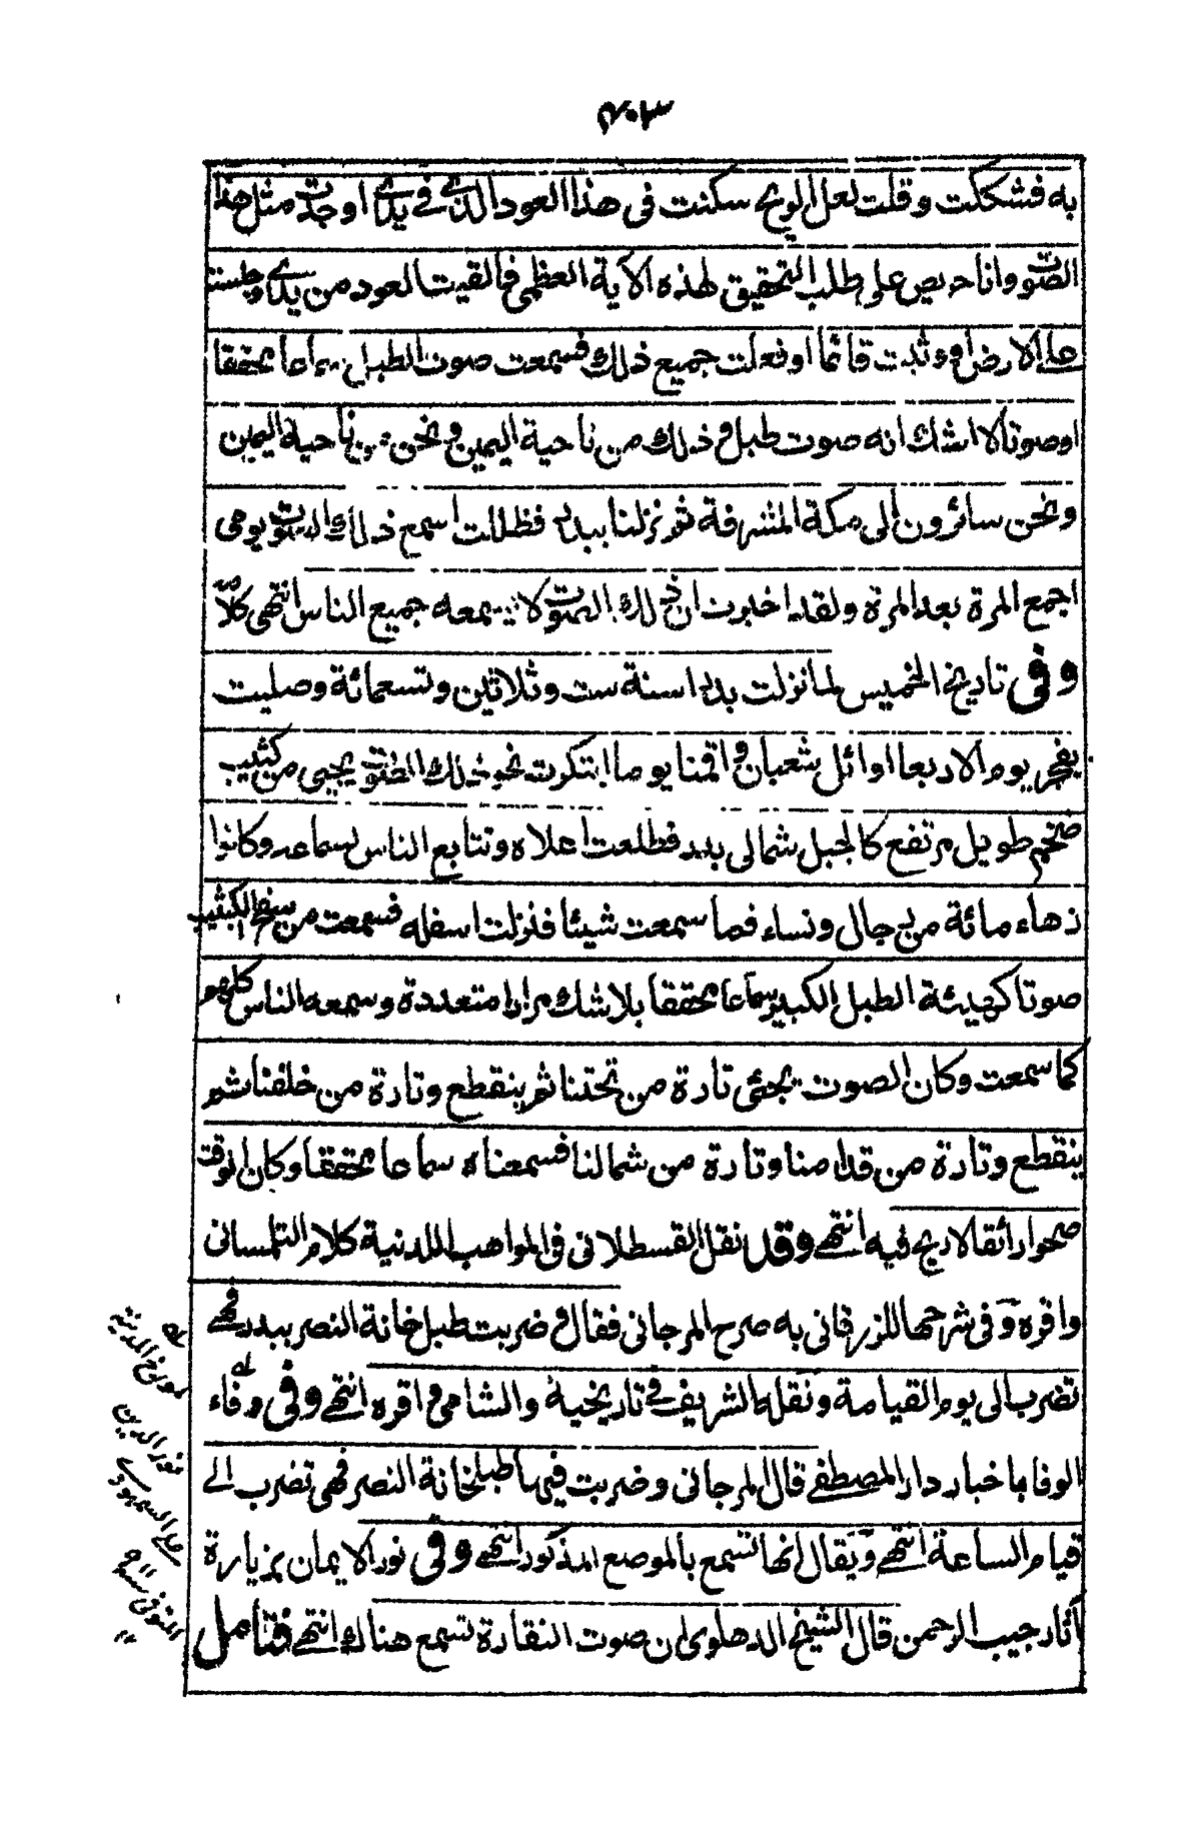 ٣٠٣
به فشككت وقلت لعل الريح سكنت فى هذا العود الذي في يدي او جدت مثل هذا
الصوت وانا حريص على طلب التحقيق لهذه الآية العظمى فالقيت العود من يدي وجلست
على الارض او وثبت قائما او فعلت جميع ذلك فسمعت صوت الطبل سماعا محققا
او صوتا لا اشك انه صوت طبل وذلك من ناحية اليمين ونحن من ناحية اليمين
ونحن سائرون الى مكة المشرفة ثم نزلنا ببدر فظللت اسمع ذلك الصوت يومى
اجمع المرة بعد المرة ولقد اخبرت ان ذلك الصوت لا يسمعه جميع الناس انتهى كلامه
وفى تاريخ الخميس لما نزلت بدرا سنة ست وثلاثين وتسعمائة وصليت
بفجر يوم الاربعا اوائل شعبان واقمنا يوما ابتكرت نحو ذلك الصوت يجيى من كثيب
ضخم طويل مرتفع كالجبل شمالى بدر فطلعت اعلاه وتتابع الناس لسماعه وكانوا
زهاء مائة من رجال ونساء فما سمعت شيئا فنزلت اسفله فسمعت من سفح الكثيب
صوتا كهيئة الطبل الكبير سماعا محققا بلا شك مرارا متعددة وسمعه الناس كلهم
كما سمعت وكان الصوت يجئى تارة من تحتنا ثم ينقطع وتارة من خلفنا ثم
ينقطع وتارة من قدامنا وتارة من شمالنا فسمعناه سماعا محققا وكان الوقت
صحوا رائقا لا ريح فيه انتهى وقد نقل القسطلانى فى المواهب اللدنية كلام التلمسانى
واقره وفى شرحها للزرقانى به صرح المرجانى فقال وضربت طبل خانة النصر ببدر فهي
تضرب الى يوم القيامة ونقله الشريف في تاريخيه والشامى واقره انتهى وفى وفاء
الوفا باخبار دار المصطفى قال المرجانى وضربت فيها طبلخانة النصر فهى تضرب الى
قيام الساعة انتهى ويقال انها تسمع بالموضع المذكور انتهى وفى نور الايمان بزيارة
آثار حبيب الرحمن قال الشيخ الدهلوى ان صوت النقارة تسمع هناك انتهى فتأمل
مورخ المدينة
نور الدين
على السمهودي
المتوفى سنة ٩١١